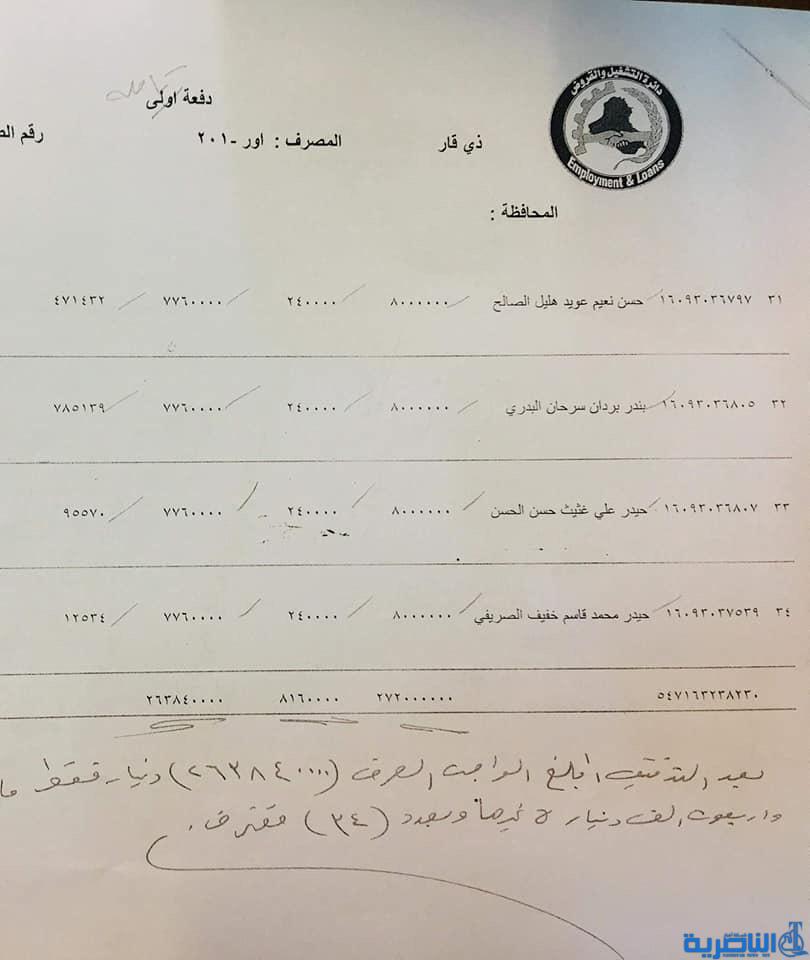 دائرة التشغيل والقروض
Employment & Loans
دفعة اولى
ذي قار
المصرف : اور -٢٠١
رقم
المحافظة :
٣١ ١٦٠٩٣٠٣٦٧٩٧ حسن نعيم عويد هليل الصالح ٨٠٠٠٠٠٠ ٢٤٠٠٠٠ ٧٧٦٠٠٠٠ ٤٧١٤٣٢
٣٢ ١٦٠٩٣٠٣٦٨٠٥ بندر بردان سرحان البدري ٨٠٠٠٠٠٠ ٢٤٠٠٠٠ ٧٧٦٠٠٠٠ ٧٨٥١٣٩
٣٣ ١٦٠٩٣٠٣٦٨٠٧ حيدر علي غثيث حسن الحسن ٨٠٠٠٠٠٠ ٢٤٠٠٠٠ ٧٧٦٠٠٠٠ ٩٥٥٧٠
٣٤ ١٦٠٩٣٠٣٧٥٣٩ حيدر محمد قاسم خفيف الصريفي ٨٠٠٠٠٠٠ ٢٤٠٠٠٠ ٧٧٦٠٠٠٠ ١٢٥٣٤
٥٤٧١٦٣٢٣٨٢٣٠ ٢٧٢٠٠٠٠٠٠ ٨١٦٠٠٠٠ ٢٦٣٨٤٠٠٠٠
بعد التدقيق المبلغ الواجب الصرف (٢٦٣٨٤٠٠٠٠) دينار فقط
واربعون الف دينار لا غيرها وبعدد (٣٤) مقترض .
الناصرية